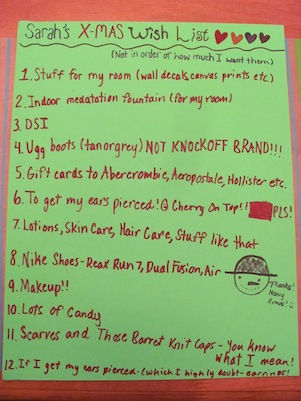 Sarah's X-MAS Wish List
(Not in order of how much I want them)
1. Stuff for my room (wall decals, canvas prints etc.)
2. Indoor medatation fountain (for my room)
3. DSI
4. Ugg boots (tan or grey) NOT KNOCKOFF BRAND!!!
5. Gift cards to Abercrombie, Aeropostale, Hollister etc.
6. To get my ears pierced! Cherry On Top!! PLS!
7. Lotions, Skin Care, Hair Care, Stuff like that
8. Nike Shoes - Reax Run 7, Dual Fusion, Air
9. Makeup!!
Thanks!
Merry
Xmas!
10. Lots of Candy
11. Scarves and Those Barret Knit Caps - you know
what I mean!
12. If I get my ears pierced - (which I highly doubt - earrings!